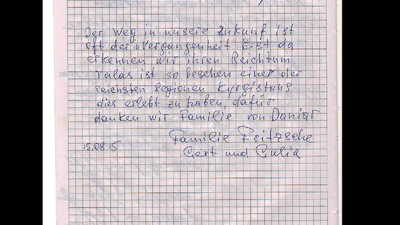 Der Weg in unsere Zukunft ist
oft der Vergangenheit Erst da
erkennen wir ihren Reichtum.
Talas ist so besehen einer der
reichsten Regionen Kyrgistans
dies erlebt zu haben, dafür
danken wir Familie von Daniar
Familie Fritzsche
15.08.15 Gert und Gulia